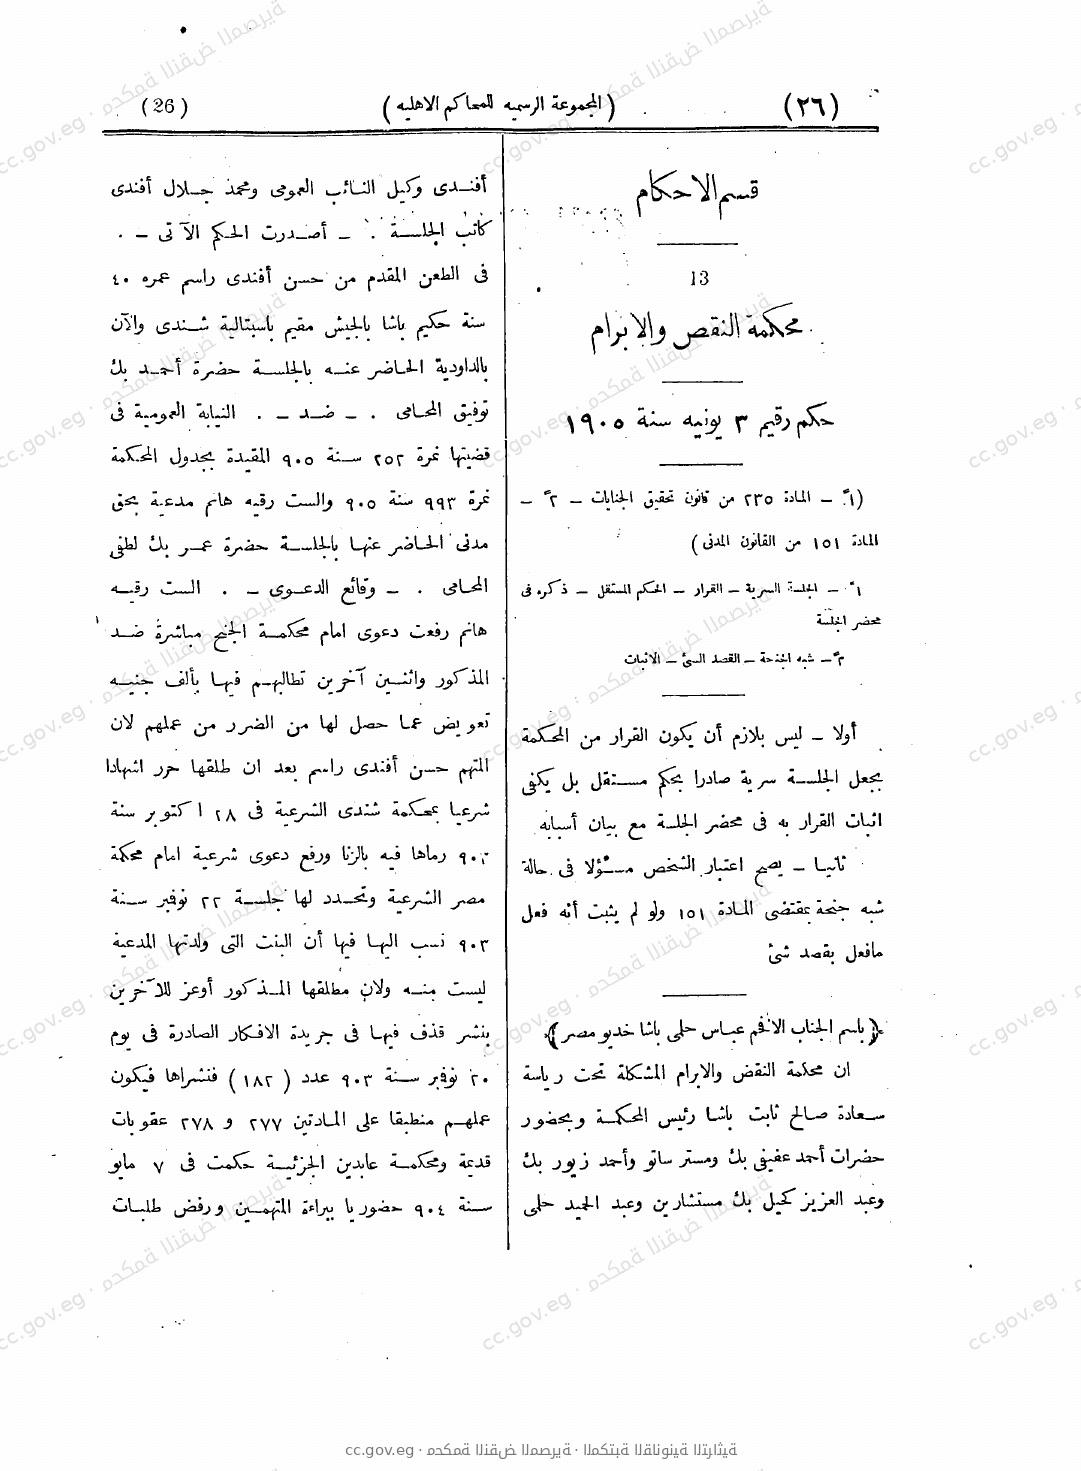 (٢٦)
(المجموعة الرسميه للمحاكم الاهليه)
(26)
قسم الاحكام
13
محكمة النقض والابرام
حكم رقيم ٣ يونيه سنة ١٩٠٥
(١ً – المادة ٢٣٥ من قانون تحقيق الجنايات – ٢ً –
المادة ١٥١ من القانون المدنى)
١ً – الجلسة السرية – القرار – الحكم المستقل – ذكره فى
محضر الجلسة
٢ً – شبه الجنحة – القصد السئ – الاثبات
أولا – ليس بلازم أن يكون القرار من المحكمة
بجعل الجلسة سرية صادرا بحكم مستقل بل يكفى
اثبات القرار به فى محضر الجلسة مع بيان أسبابه
ثانيا – يصح اعتبار الشخص مسئولا فى حالة
شبه جنحة بمقتضى المادة ١٥١ ولو لم يثبت أنه فعل
مافعل بقصد سئ
﴿باسم الجناب الافخم عباس حلمى باشا خديو مصر﴾
ان محكمة النقض والابرام المشكلة تحت رياسة
سعادة صالح ثابت باشا رئيس المحكمة وبحضور
حضرات أحمد عفيفى بك ومستر ساتو وأحمد زيور بك
وعبد العزيز كحيل بك مستشارين وعبد الحميد حلمى
أفندى وكيل النائب العمومى ومحمد جلال أفندى
كاتب الجلسة . – أصدرت الحكم الآتى – .
فى الطعن المقدم من حسن أفندى راسم عمره ٤٠
سنة حكيم باشا بالجيش مقيم باسبتالية شندى والآن
بالداودية الحاضر عنه بالجلسة حضرة أحمد بك
توفيق المحامى . – ضد – . النيابة العمومية فى
قضيتها نمرة ٢٥٢ سنة ٩٠٥ المقيدة بجدول المحكمة
نمرة ٩٩٣ سنة ٩٠٥ والست رقيه هانم مدعية بحق
مدنى الحاضر عنها بالجلسة حضرة عمر بك لطفى
المحامى . – وقائع الدعوى – . الست رقيه
هانم رفعت دعوى امام محكمة الجنح مباشرة ضد
المذكور واثنين آخرين تطالبهم فيها بألف جنيه
تعويض عما حصل لها من الضرر من عملهم لان
المتهم حسن أفندى راسم بعد ان طلقها حرر اشهادا
شرعيا بمحكمة شندى الشرعية فى ٢٨ اكتوبر سنة
٩٠٢ رماها فيه بالزنا ورفع دعوى شرعية امام محكمة
مصر الشرعية وتحدد لها جلسة ٢٢ نوفمبر سنة
٩٠٣ نسب اليها فيها أن البنت التى ولدتها المدعية
ليست منه ولان مطلقها المذكور أوعز للآخرين
بنشر قذف فيها فى جريدة الافكار الصادرة فى يوم
٢٠ نوفمبر سنة ٩٠٣ عدد (١٨٢) فنشراها فيكون
عملهم منطبقا على المادتين ٢٧٧ و ٢٧٨ عقوبات
قديمة ومحكمة عابدين الجزئية حكمت فى ٧ مايو
سنة ٩٠٤ حضوريا ببراءة المتهمين ورفض طلبات
cc.gov.eg · محكمة النقض المصرية · المكتبة القانونية التراثية